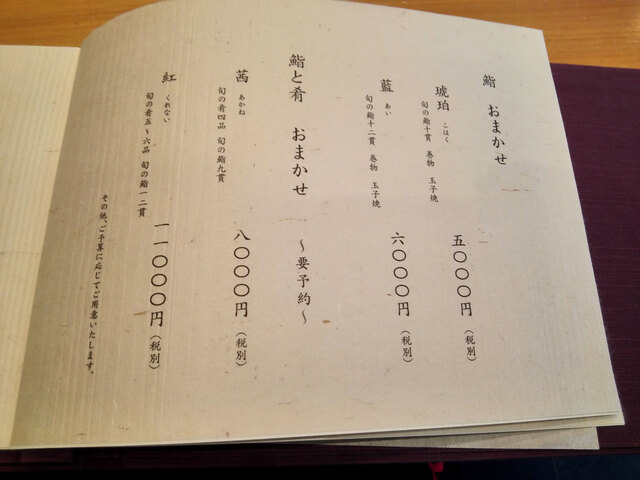 鮨 おまかせ
琥珀 こはく 五〇〇〇円(税別)
旬の鮨十貫 巻物 玉子焼
藍 あい 六〇〇〇円(税別)
旬の鮨十二貫 巻物 玉子焼
鮨と肴 おまかせ 〜要予約〜
茜 あかね 八〇〇〇円(税別)
旬の肴四品 旬の鮨九貫
紅 くれない 一一〇〇〇円(税別)
旬の肴五〜六品 旬の鮨一二貫
その他、ご予算に応じてご用意いたします。